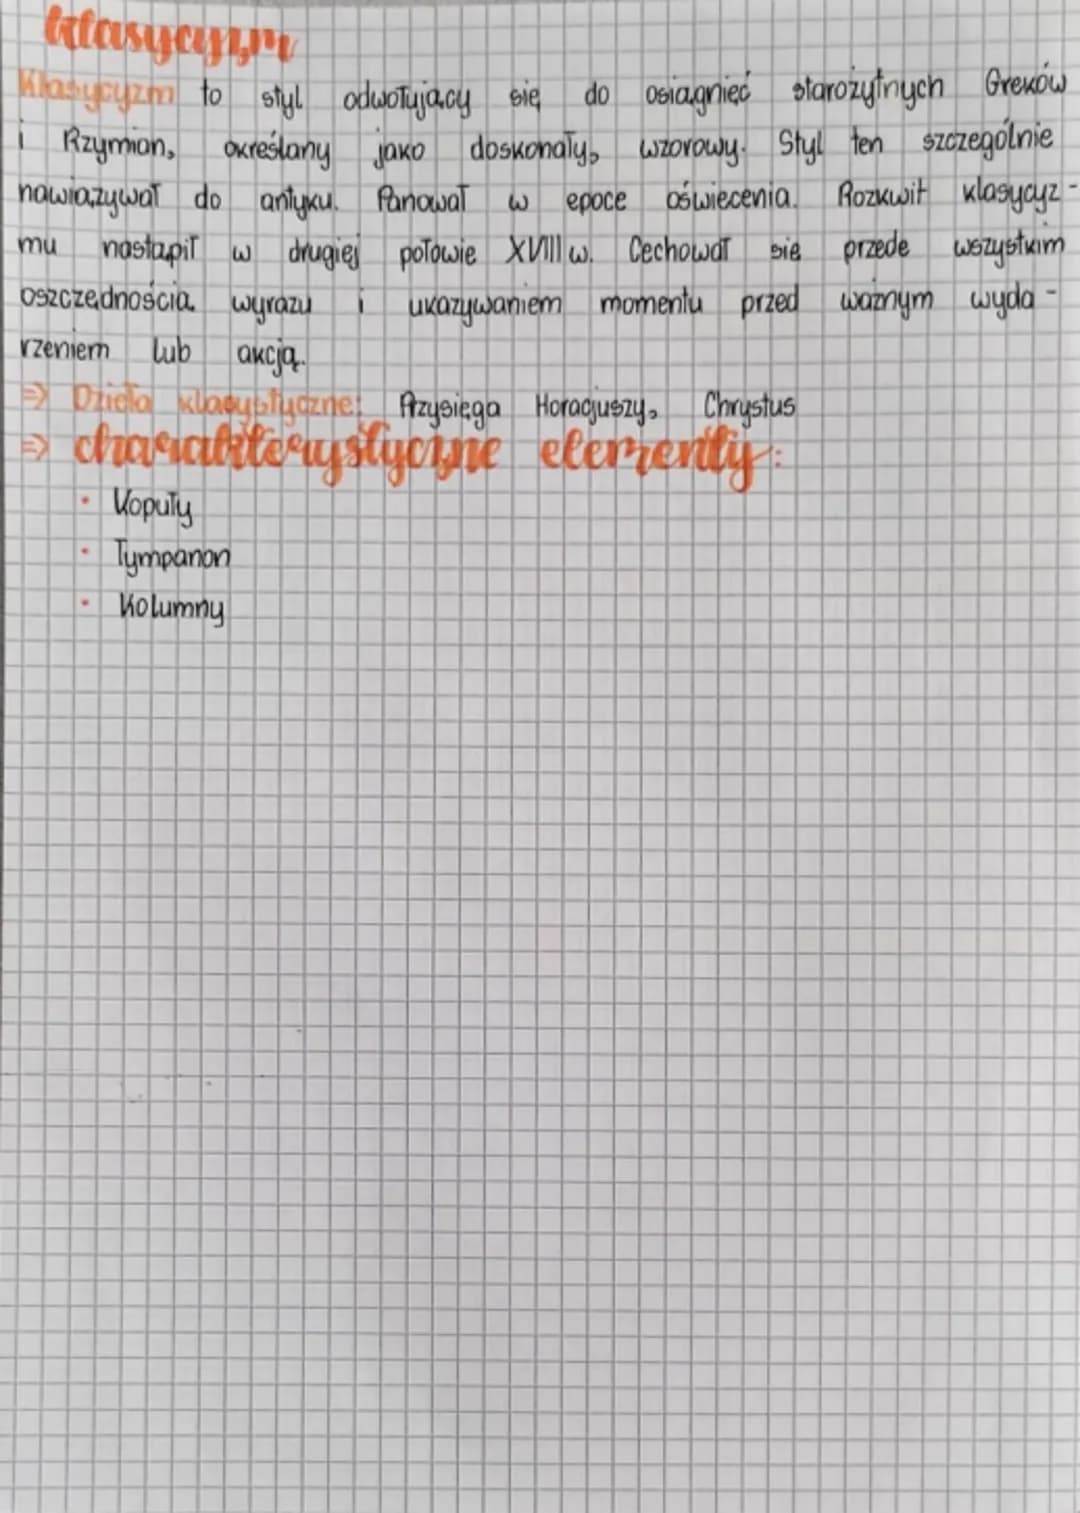 klasycyzm
Klasycyzm to styl odwołujący się do osiągnięć starożytnych Greków
i Rzymian, określany jako doskonały, wzorowy. Styl ten szczególnie
nawiązywał do antyku. Panował w epoce oświecenia. Rozkwit klasycyz-
mu nastąpił w drugiej połowie XVIII w. Cechował się przede wszystkim
oszczędnością wyrazu i ukazywaniem momentu przed ważnym wyda-
rzeniem lub akcją.
=> Dzieła klasystyczne: Przysięga Horacjuszy, Chrystus
=> charakterystyczne elementy:
• Kopuły
• Tympanon
• Kolumny